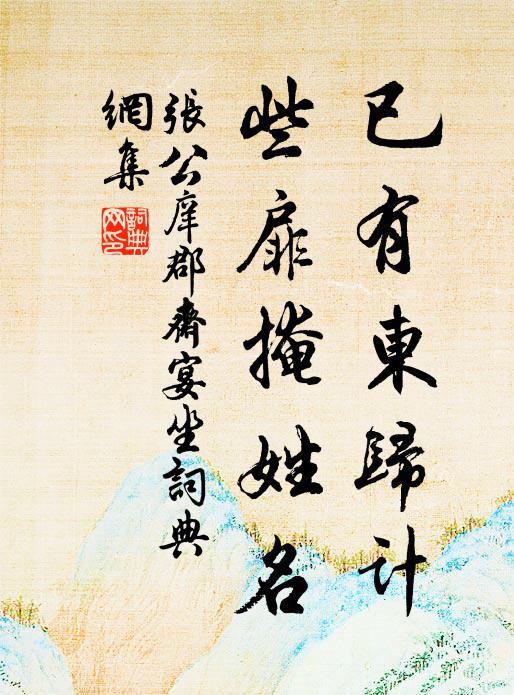 已有東歸計
柴扉掩姓名
張公庠郡齋宴坐詞典
網集
詞典
网印